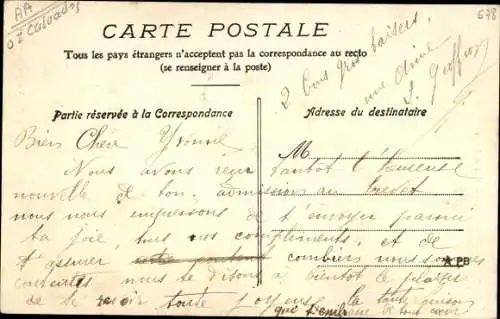 AA
07 Calvados
678
CARTE POSTALE
Tous les pays étrangers n'acceptent pas la correspondance au recto
(se renseigner à la poste)
2 bons gros baisers
une
Partie réservée à la Correspondance
Adresse du destinataire
M
Bien Chère Yvonne
Nous avons reçu tantôt l'heureuse
nouvelle de ton admission au
nous nous empressons de t'envoyer parmi
ta joie, tous nos compliments, et de
t'assurer combien nous sommes
nous te disons à bientôt le plaisir
de te revoir toute joyeuse la
qui t'embrasse de tout cœur
A PB